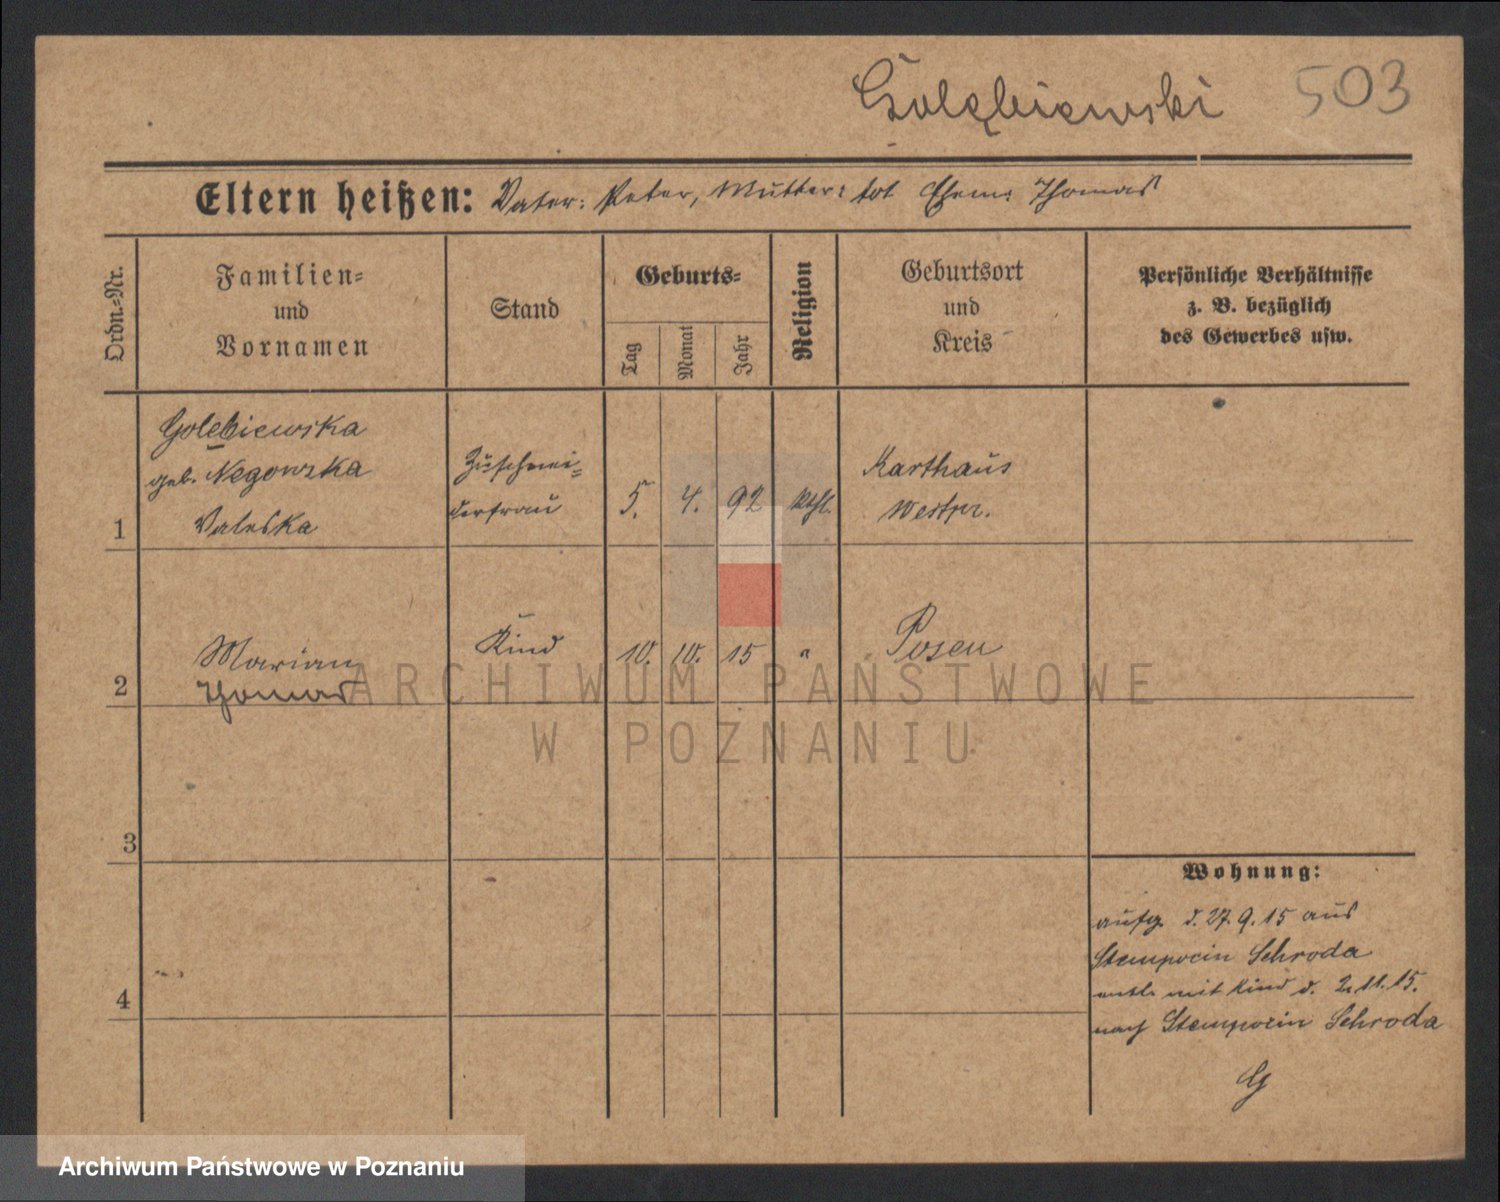 Golębiewski 503
Eltern heißen: Vater: Peter, Mutter: tot Ehem: Thomas
Ordn.-Nr.
Familien-
und
Vornamen
Stand
Geburts-
Tag
Monat
Jahr
Religion
Geburtsort
und
Kreis
Persönliche Verhältnisse
z. B. bezüglich
des Gewerbes usw.
1
Golębiewska
geb. Negowska
Valeska
Zuschnei-
derfrau
5. 4. 92 kath.
Karthaus
Westpr.
2
Marian
Thomas
Kind
10. 10. 15 "
Posen
3
4
Wohnung:
aufg. d. 27. 9. 15 aus
Stempocin Schroda
entl. mit Kind d. 2. 11. 15.
nach Stempocin Schroda
G
ARCHIWUM PAŃSTWOWE
W POZNANIU
Archiwum Państwowe w Poznaniu